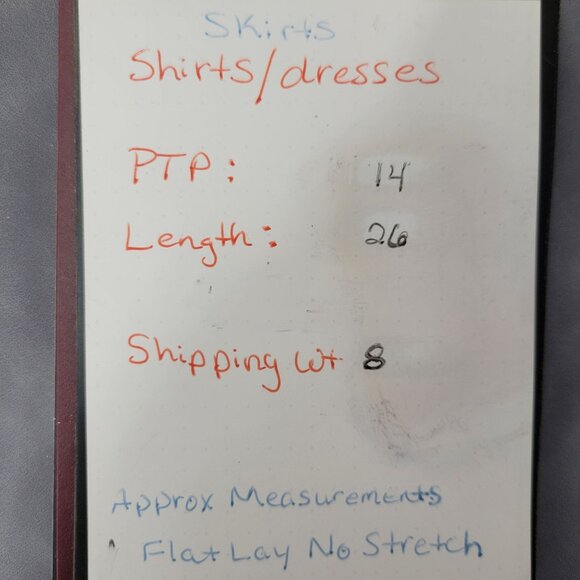 Skirts
Shirts/dresses
PTP: 14
Length: 26
Shipping Wt 8
Approx Measurements
Flat Lay No Stretch